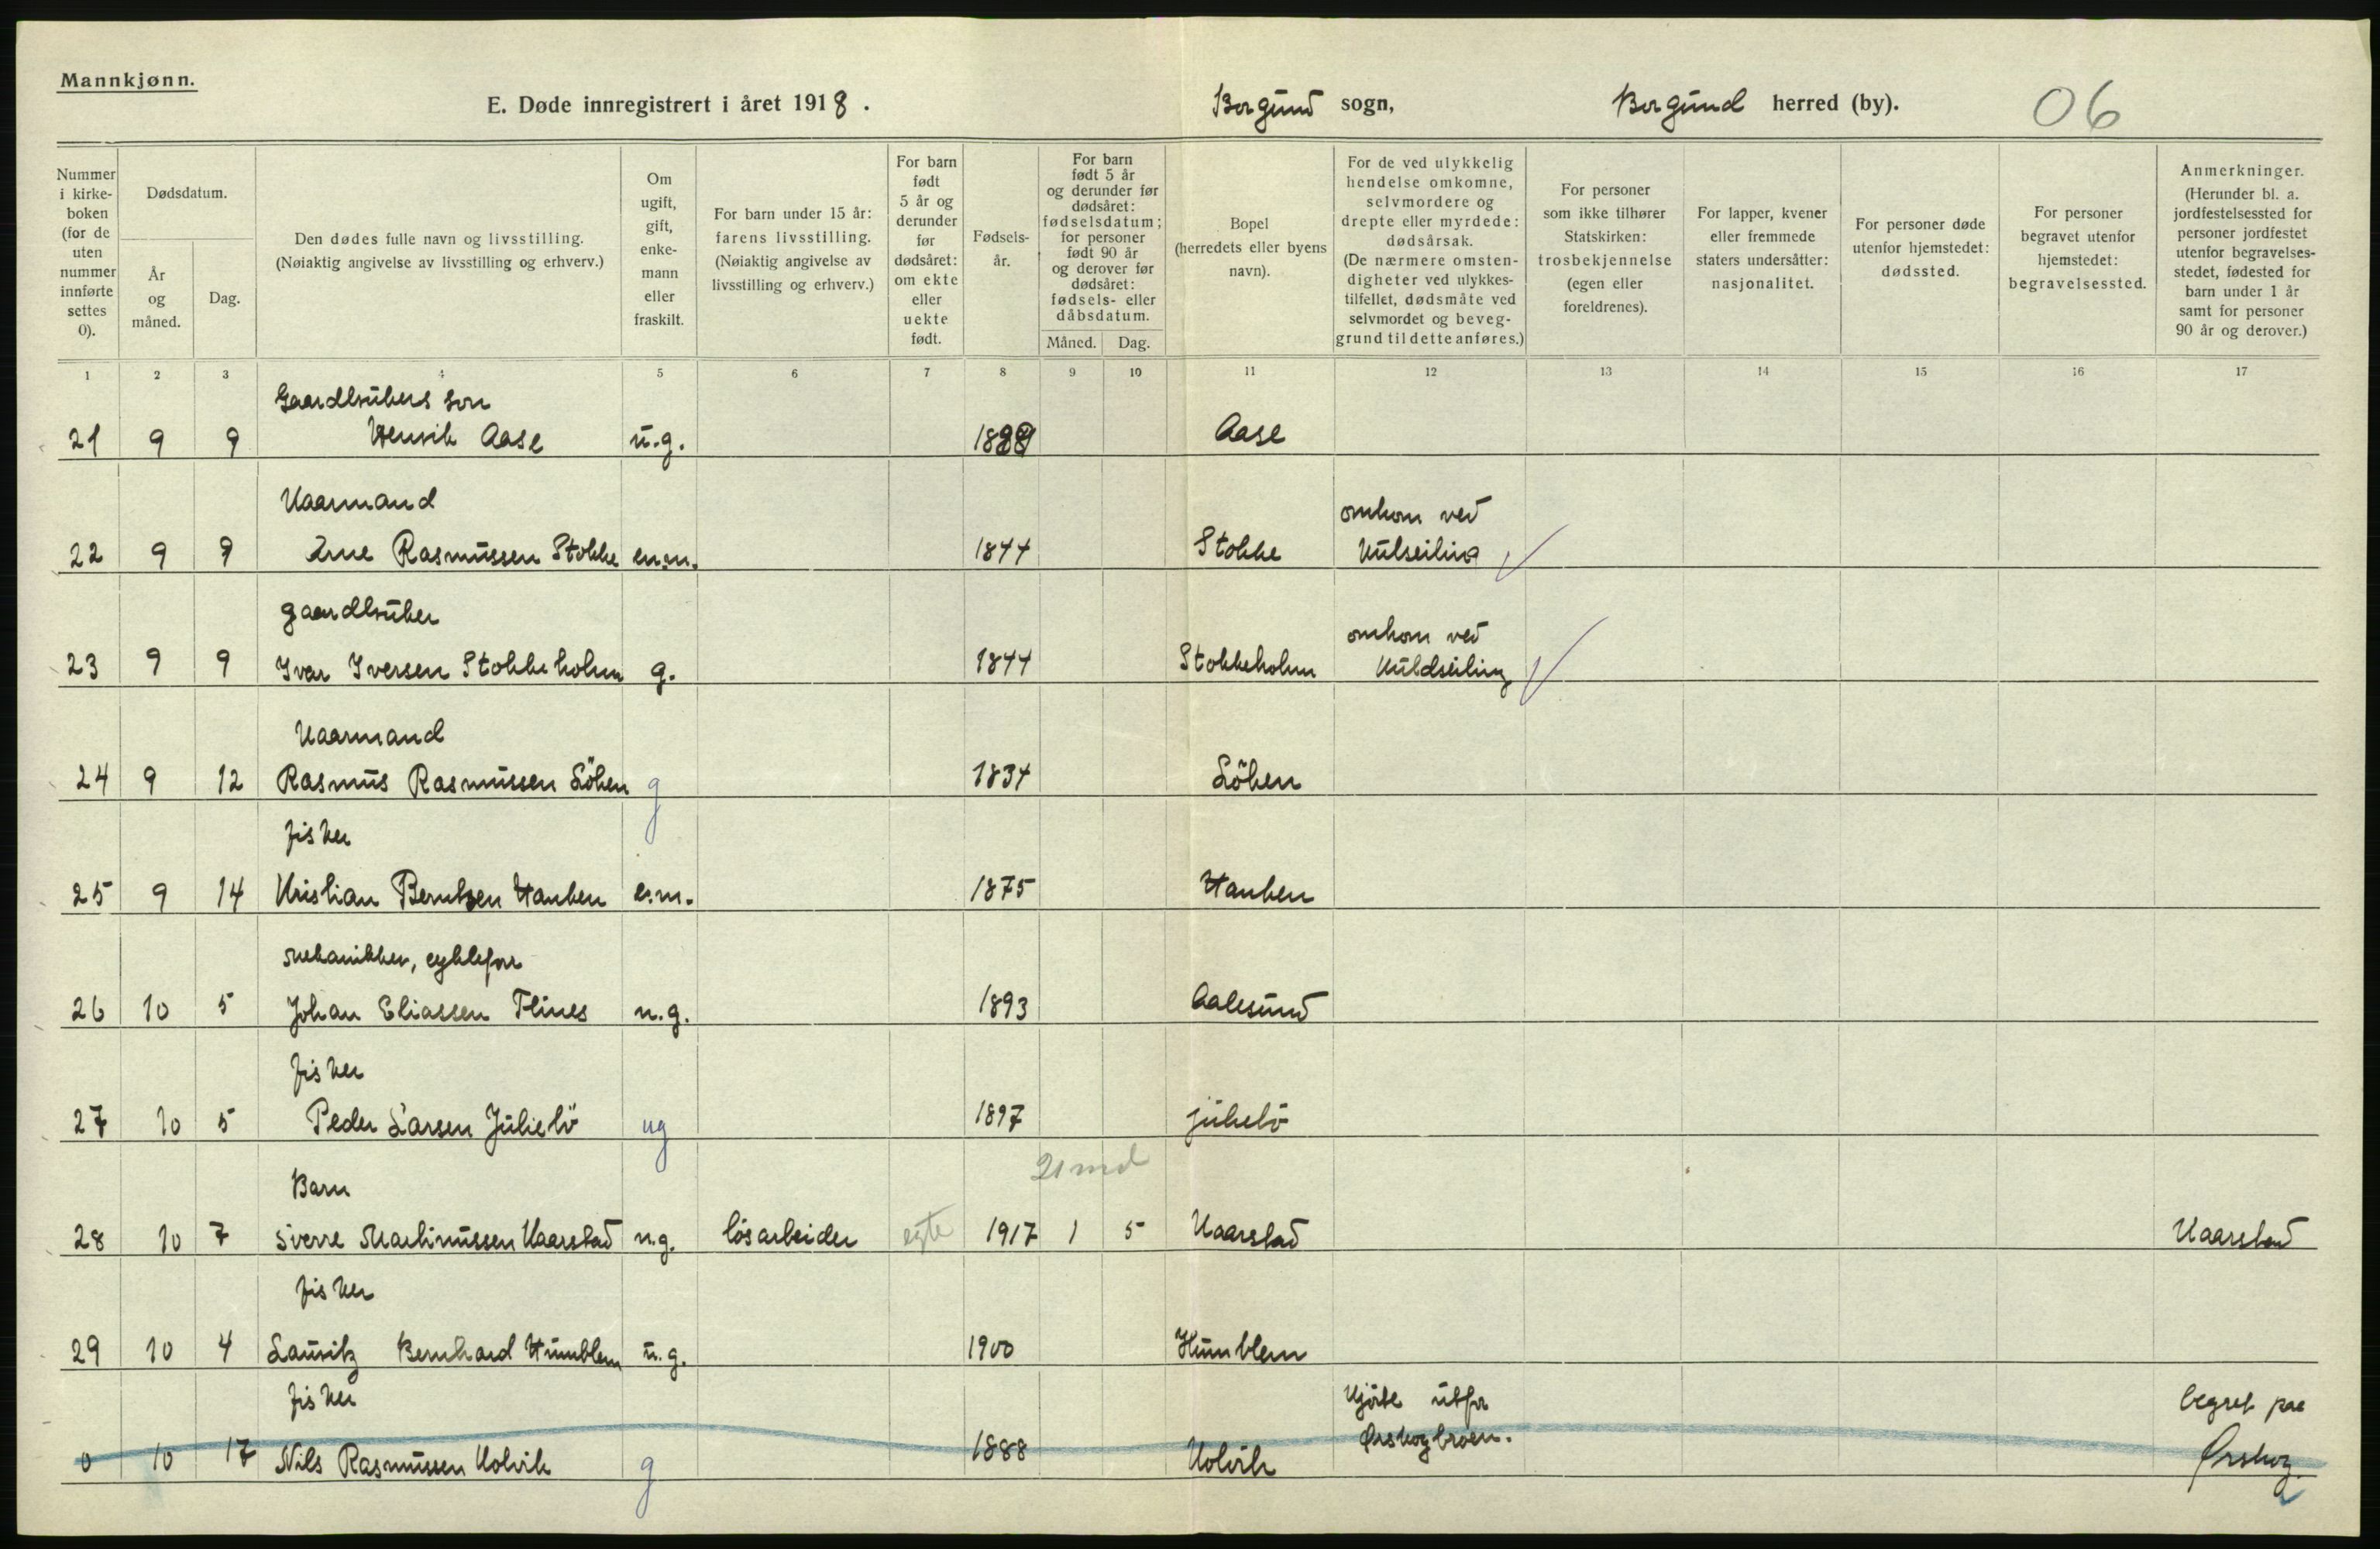 Mannkjønn.
E. Døde innregistrert i året 1918. Borgund sogn, Borgund herred (by). 06
Nummer i kirkeboken (for de uten nummer innførte settes 0).
Dødsdatum.
År og måned.
Dag.
Den dødes fulle navn og livsstilling.
(Nøiaktig angivelse av livsstilling og erhverv.)
Om ugift, gift, enkemann eller fraskilt.
For barn under 15 år: farens livsstilling. (Nøiaktig angivelse av livsstilling og erhverv.)
For barn født 5 år og derunder før dødsåret: om ekte eller uekte født.
Fødselsår.
For barn født 5 år og derunder før dødsåret: fødselsdatum; for personer født 90 år og derover før dødsåret: fødsels- eller dåbsdatum.
Måned. Dag.
Bopel (herredets eller byens navn).
For de ved ulykkelig hendelse omkomne, selvmordere og drepte eller myrdede: dødsårsak. (De nærmere omstendigheter ved ulykkestilfellet, dødsmåte ved selvmordet og beveggrund til dette anføres.)
For personer som ikke tilhører Statskirken: trosbekjennelse (egen eller foreldrenes).
For lapper, kvener eller fremmede staters undersåtter: nasjonalitet.
For personer døde utenfor hjemstedet: dødssted.
For personer begravet utenfor hjemstedet: begravelsessted.
Anmerkninger. (Herunder bl. a. jordfestelsessted for personer jordfestet utenfor begravelsesstedet, fødested for barn under 1 år samt for personer 90 år og derover.)
1 2 3 4 5 6 7 8 9 10 11 12 13 14 15 16 17
Gaardbrukers søn
21 9 9 Henrik Aase u.g. Aase
Kaarmand omkom ved
22 9 9 Rasmussen Stokke en.m. 1844 Stokke kulseiling
gaardbruker omkom ved
23 9 9 Ivar Iversen Stokkeholm g. 1844 Stokkeholm kuldseiling
Kaarmand
24 9 12 Rasmus Rasmussen Löken g 1834 Löken
fisker
25 9 14 Kristian Berntsen Hauken e.m. 1875 Hauken
mekanikker,
26 10 5 Johan Eliassen Flines u.g. 1893 Aalesund
fisker
27 10 5 Peder Larsen ug 1897
Barn 21 md
28 10 7 Sverre Martinussen Kaarstad u.g. løsarbeider egte 1917 1 5 Kaarstad Kaarstad
fisker
29 10 4 Lauritz Bernhard Humblem u.g. 1900 Humblem
fisker Kjørte utfor begret paa
0 10 17 Nils Rasmussen Kolvik g 1888 Kolvik Ørskogbroen. Ørskog